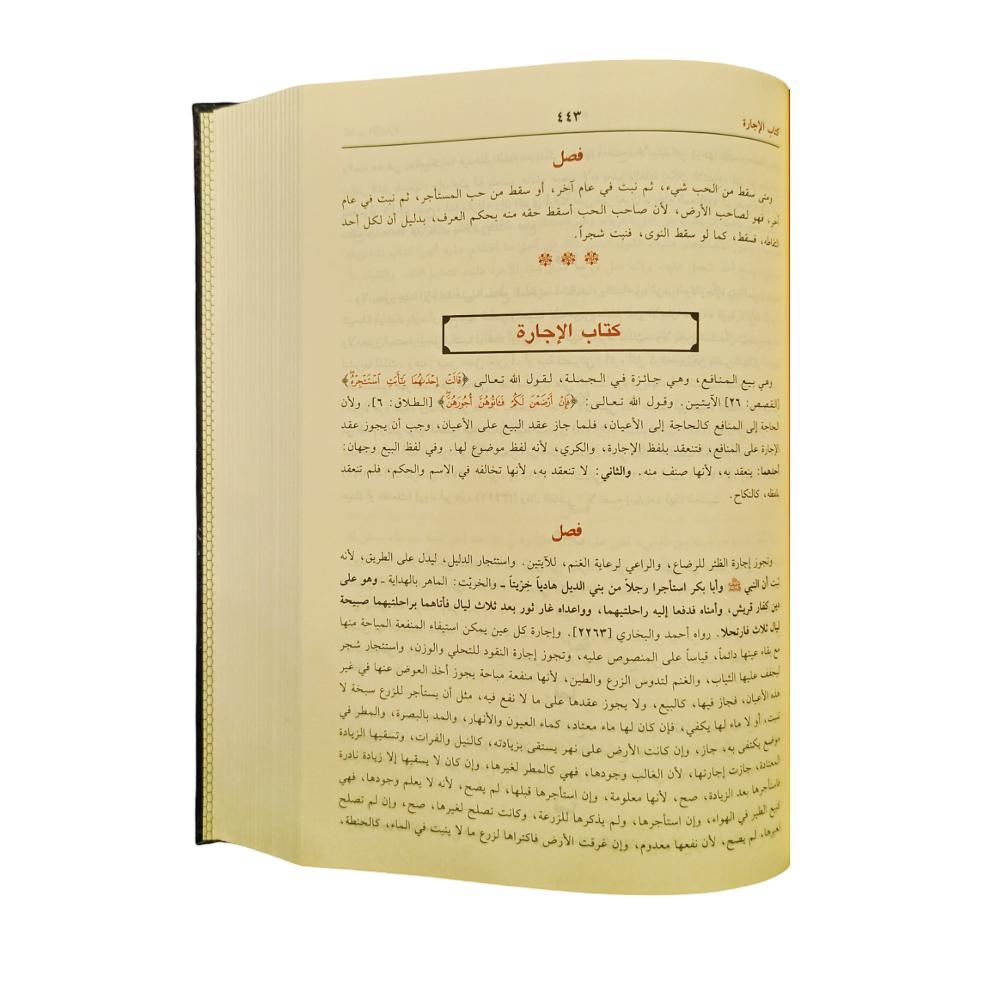 كتاب الإجارة
٤٤٣
فصل
ومتى سقط من الحب شيء، ثم نبت في عام آخر، أو سقط من حب المستأجر، ثم نبت في عام
آخر، فهو لصاحب الأرض، لأن صاحب الحب أسقط حقه منه بحكم العرف، بدليل أن لكل أحد
التقاطه، فسقط، كما لو سقط النوى، فنبت شجراً.
كتاب الإجارة
وهي بيع المنافع، وهي جائزة في الجملة، لقول الله تعالى ﴿قَالَتْ إِحْدَىٰهُمَا يَٰٓأَبَتِ ٱسْتَـْٔجِرْهُ﴾
[القصص: ٢٦] الآيتين. وقول الله تعالى: ﴿فَإِنْ أَرْضَعْنَ لَكُمْ فَـَٔاتُوهُنَّ أُجُورَهُنَّ﴾ [الطلاق: ٦]. ولأن
الحاجة إلى المنافع كالحاجة إلى الأعيان، فلما جاز عقد البيع على الأعيان، وجب أن يجوز عقد
الإجارة على المنافع، فتنعقد بلفظ الإجارة، والكري، لأنه لفظ موضوع لها. وفي لفظ البيع وجهان:
أحدهما: ينعقد به، لأنها صنف منه. والثاني: لا تنعقد به، لأنها تخالفه في الاسم والحكم، فلم تنعقد
بلفظه، كالنكاح.
فصل
وتجوز إجارة الظئر للرضاع، والراعي لرعاية الغنم، للآيتين. واستئجار الدليل، ليدل على الطريق، لأنه
ثبت أن النبي ﷺ وأبا بكر استأجرا رجلاً من بني الديل هادياً خِرّيتاً ـ والخريّت: الماهر بالهداية ـ وهو على
دين كفار قريش، وأمناه فدفعا إليه راحلتيهما، وواعداه غار ثور بعد ثلاث ليال فأتاهما براحلتيهما صبيحة
ليال ثلاث فارتحلا. رواه أحمد والبخاري [٢٢٦٣]. وإجارة كل عين يمكن استيفاء المنفعة المباحة منها
مع بقاء عينها دائماً، قياساً على المنصوص عليه، وتجوز إجارة النقود للتحلي والوزن، واستئجار شجر
ليجفف عليها الثياب، والغنم لتدوس الزرع والطين، لأنها منفعة مباحة يجوز أخذ العوض عنها في غير
هذه الأعيان، فجاز فيها، كالبيع، ولا يجوز عقدها على ما لا نفع فيه، مثل أن يستأجر للزرع سبخة لا
تنبت، أو لا ماء لها يكفي، فإن كان لها ماء معتاد، كماء العيون والأنهار، والمد بالبصرة، والمطر في
موضع يكتفى به، جاز، وإن كانت الأرض على نهر يستقى بزيادته، كالنيل والفرات، وتسقيها الزيادة
المعتادة، جازت إجارتها، لأن الغالب وجودها، فهي كالمطر لغيرها، وإن كان لا يسقيها إلا زيادة نادرة
فاستأجرها بعد الزيادة، صح، لأنها معلومة، وإن استأجرها قبلها، لم يصح، لأنه لا يعلم وجودها، فهي
كبيع الطير في الهواء، وإن استأجرها، ولم يذكرها للزرعة، وكانت تصلح لغيرها، صح، وإن لم تصلح
لغيرها، لم يصح، لأن نفعها معدوم، وإن غرقت الأرض فاكتراها لزرع ما لا ينبت في الماء، كالحنطة،